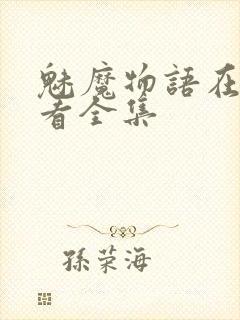 魅魔物語在
看全集
孫荣海